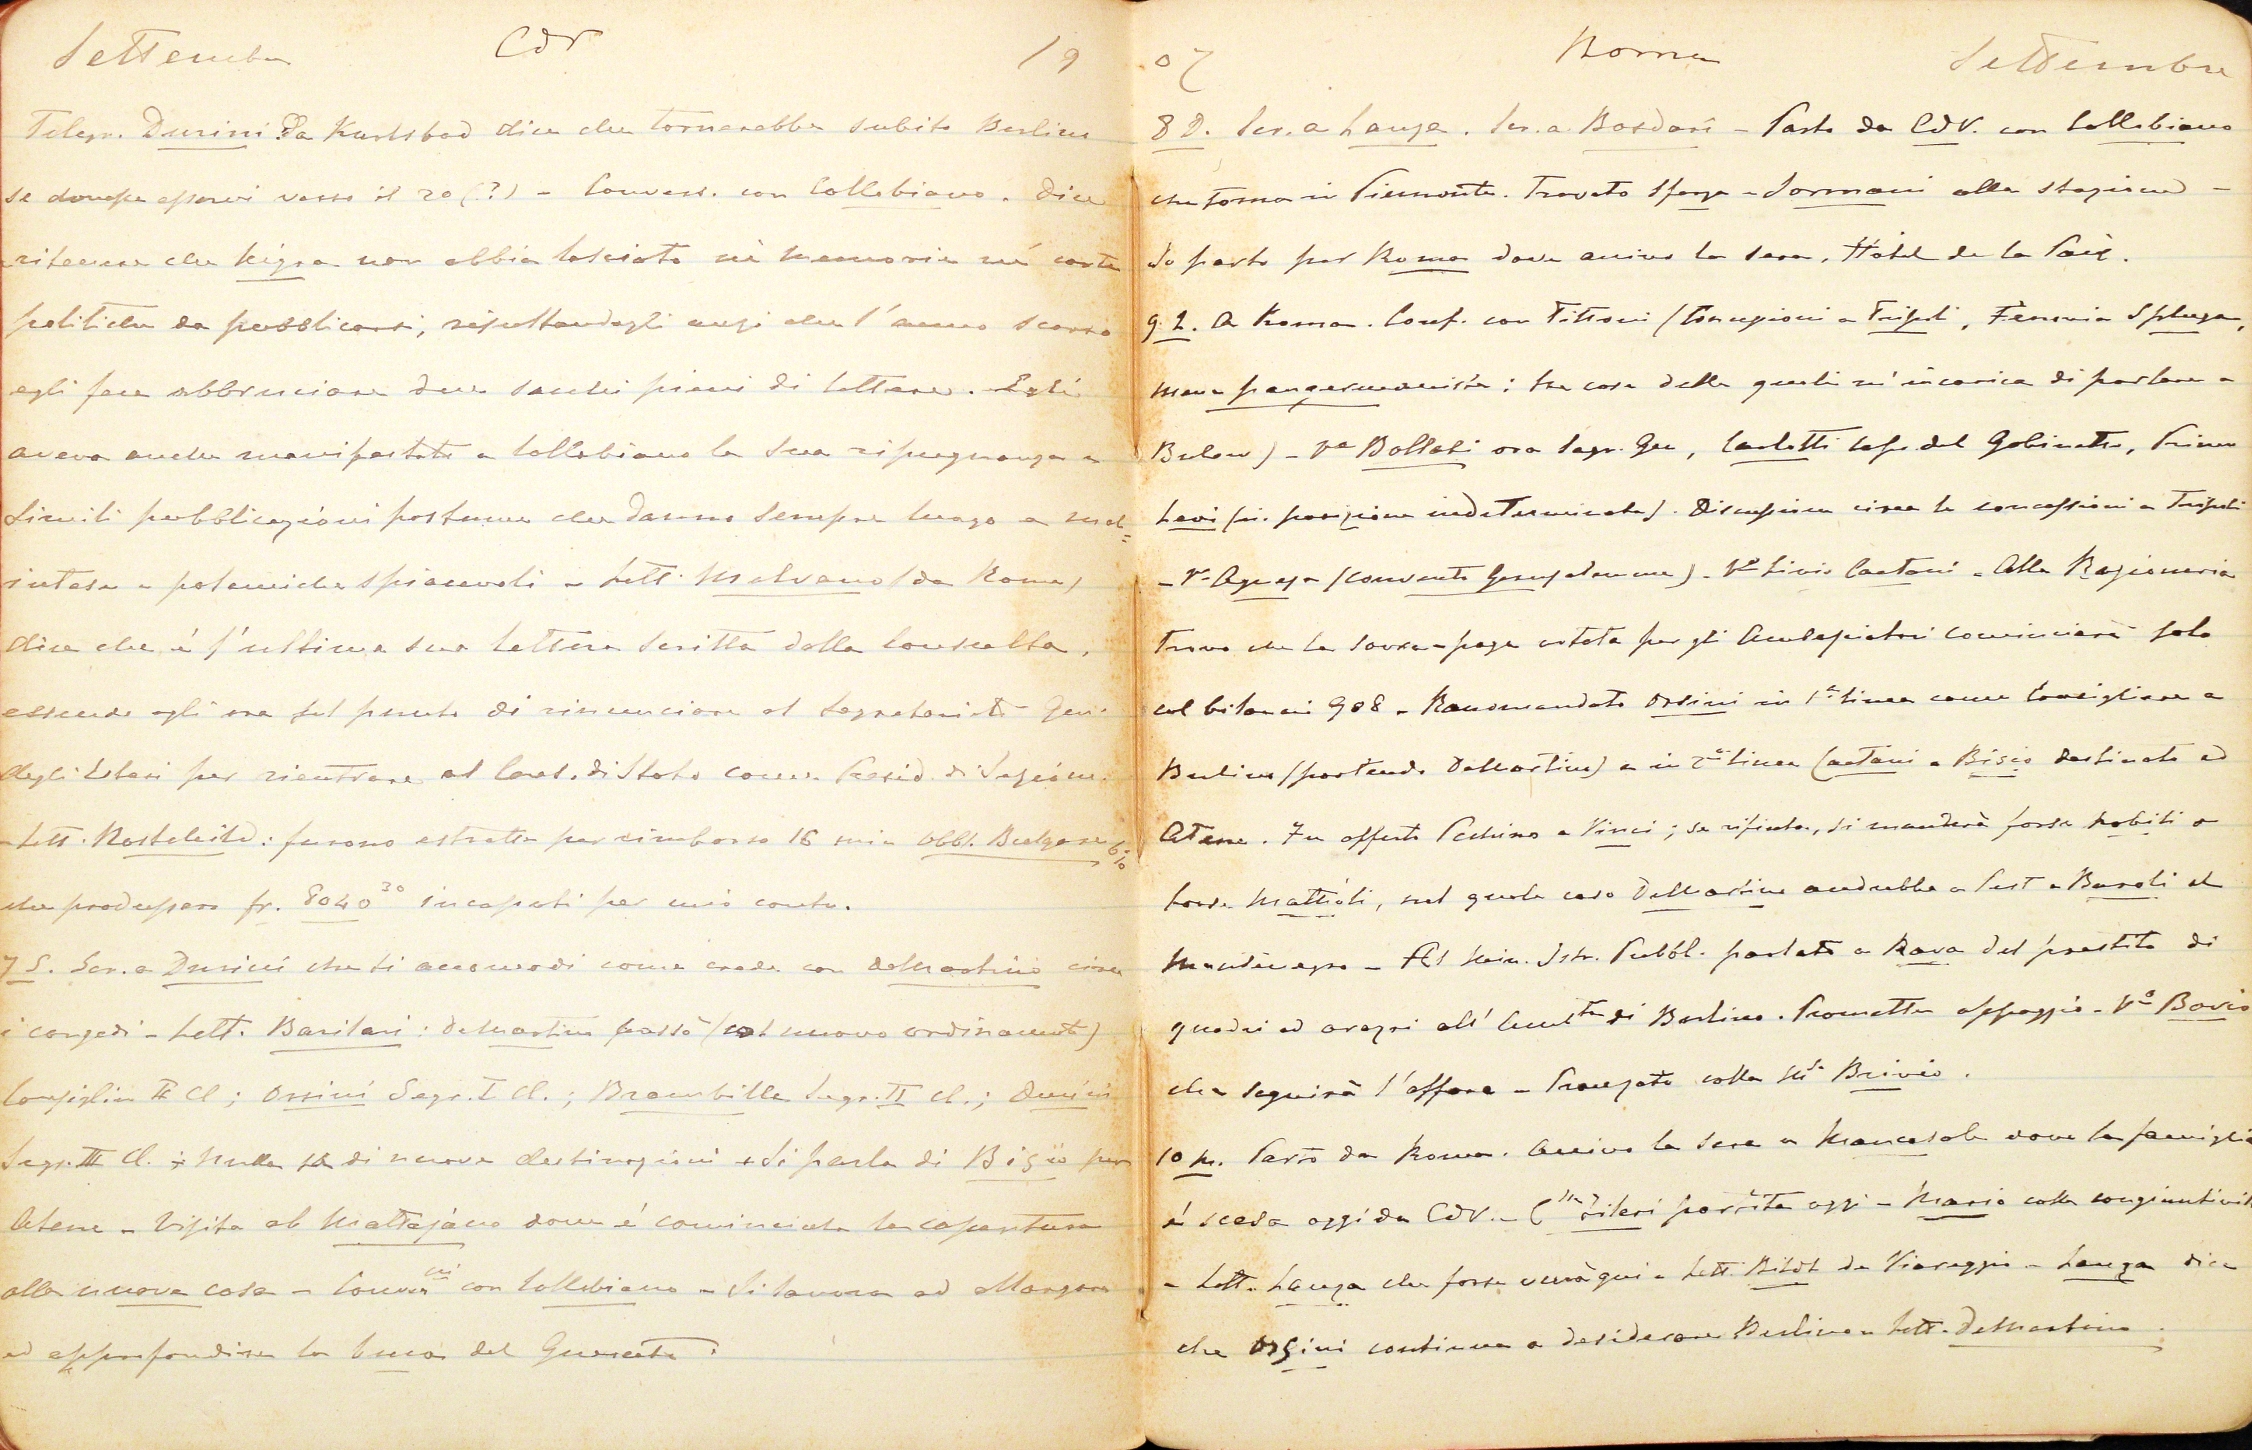 Settembre CdV 19
Telegr. Durini da Karlsbad dice che tornerebbe subito Berlino
se dovesse esservi verso il 20 (?) - Convers. con Collobiano. Dice
ritenere che Nigra non abbia lasciato nè memorie nè carte
politiche da pubblicarsi, risultandogli anzi che l'anno scorso
egli fece abbruciare due sacchi pieni di lettere. Egli
aveva anche manifestato a Collobiano la sua ripugnanza a
simili pubblicazioni postume che danno sempre luogo a mal=
intesi e polemiche spiacevoli - Lett. Malvano (da Roma)
dice che è l'ultima sua lettera scritta dalla Consulta,
essendo egli ora sul punto di rinunciare al Segretariato Gen.
degli Esteri per rientrare al Cons. di Stato come Presid. di Sezione.
- Lett. Rostchild: furono estratte per rimborso 16 mie obbl. Bulgare 6%
che produssero fr. 8040 30 incassati per mio conto.
7 S. Scr. a Durini che si accomodi come crede con deMartino circa
i congedi - Lett. Barilari: deMartino passò (col nuovo ordinamento)
Consiglire II Cl; Orsini Segr. I Cl.; Brambilla Segr. II Cl.; Durini
Segr. III Cl. Nulla sa di nuove destinazioni. Si parla di Bisio per
Atene - Visita al Mattajano dove è cominciata la copertura
alla nuova casa - Convni con Collobiano - Si lavora ad allargare
ed approfondire la buca del Querceto.
07 Roma Settembre
8 D. Scr. a Lanza. Scr. a Bosdari - Parto da CdV. con Collobiano
che torna in Piemonte. Trovato Sforza - Sormani alla stazione -
Io parto per Roma dove arrivo la sera. Hôtel de la Paix.
9 L. A Roma. Conf. con Tittoni (Concessioni a Tripoli, Ferrovia Spluga,
mene pangermaniste: tre cose delle quali m'incarica di parlare a
Bulow) - Va Bollati ora Segr. Gen, Carlotti capo del Gabinetto, Primo
Levi (in posizione indeterminata). Discussione circa le concessioni a Tripoli
- Va Agnesa (convento Gerusalemme) - Va Livio Caetani - Alla Ragioneria
trovo che la sovra-paga votata per gli Ambasciatori comincierà solo
col bilanci 908 - Raccomandato Orsini in 1a linea come Consigliere a
Berlino (partendo DeMartino) e in 2a linea Caetani e Bisio destinato ad
Atene. Fu offerto Pechino a Vinci; se rifiuta, si manderà forse Nobili o
forse Mattioli, nel quale caso DeMartino andrebbe a Pest e Baroli al
Montenegro - Al Min. Istr. Pubbl. parlato a Rava del prestito di
quadri ed arazzi all' Ambta di Berlino. Promette appoggio - Vo Bovio
che seguirà l'affare - Pranzato colla Msa Brivio.
10 M. Parto da Roma. Arrivo la sera a Mancasale dove la famiglia
è scesa oggi da CdV. - Sileri partita oggi - Mario colla congiuntivite
- Lett. Lanza che forse verrà qui - Lett. Bildt da Viareggio - Lanza dice
che Orsini continua a desiderare Berlino - Lett. DeMartino.